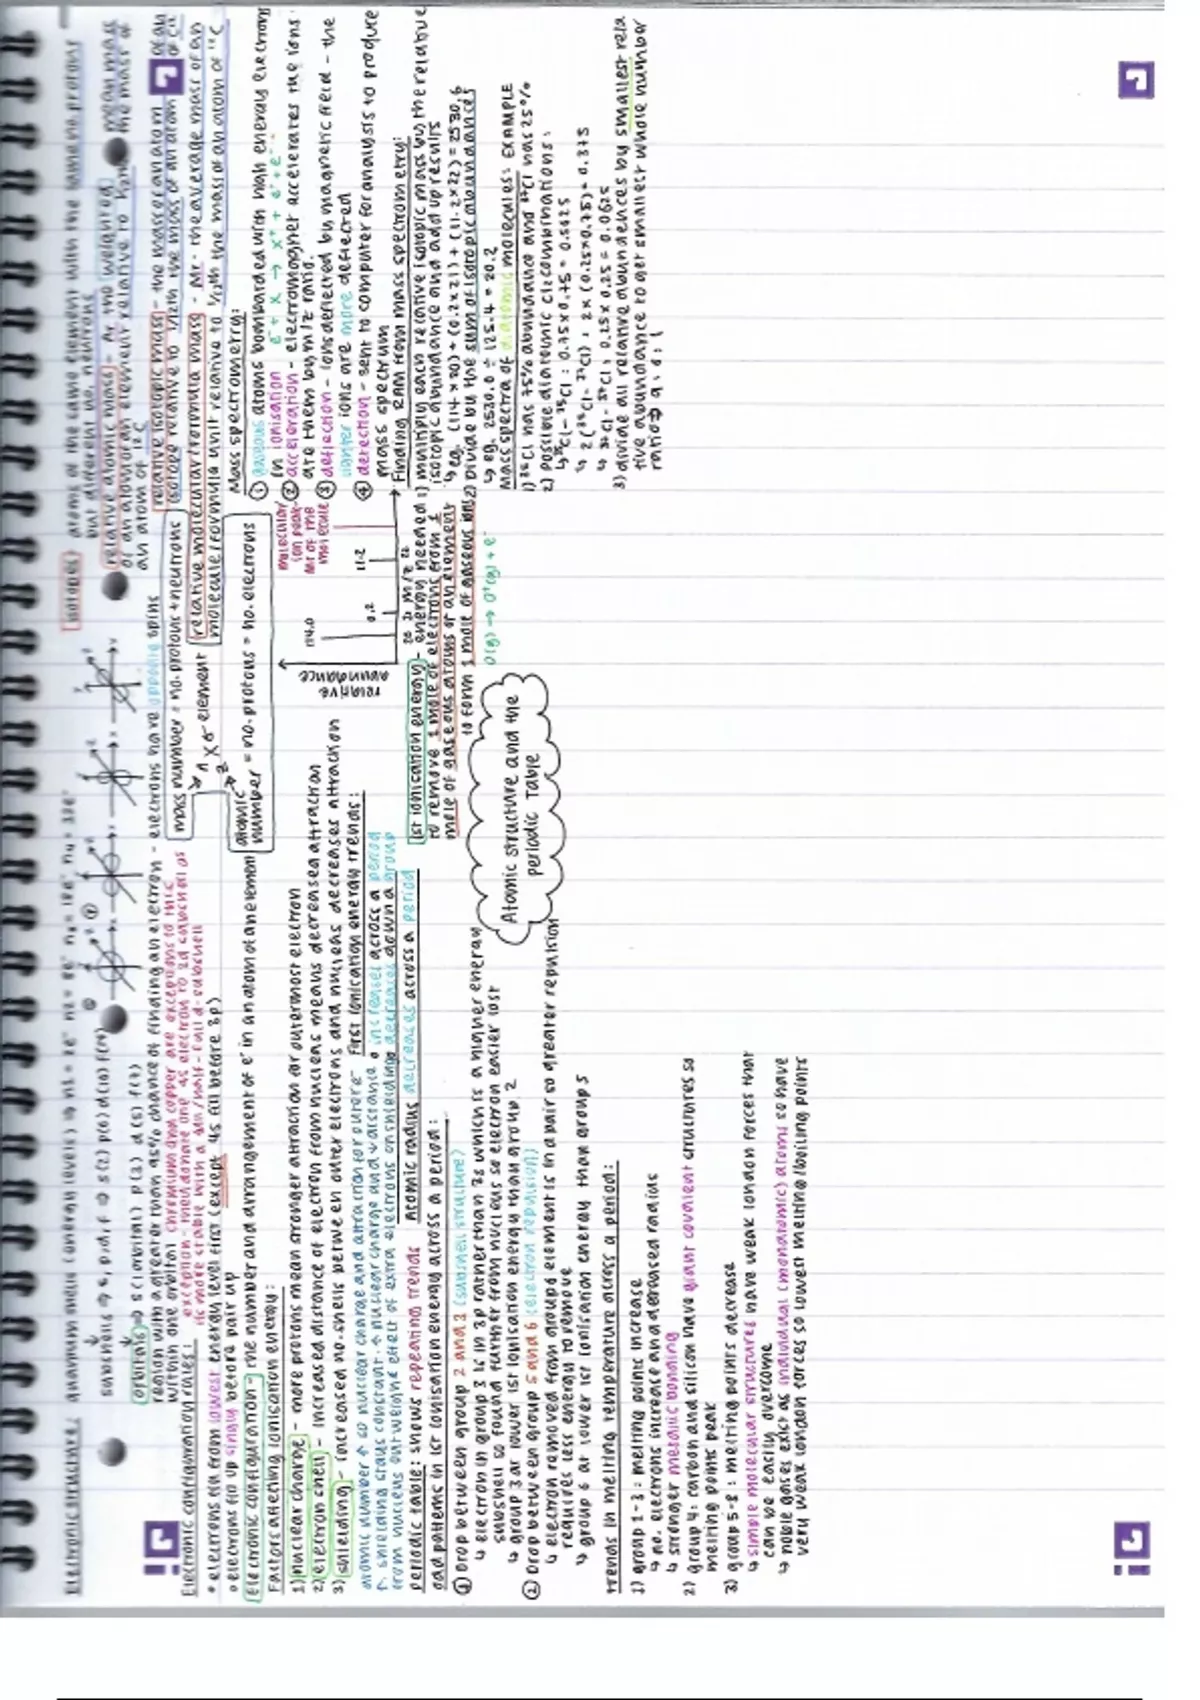 Electronic structure: quantum shells (energy levels) → n1 = 2e⁻ n2 = 8e⁻ n3 = 18e⁻ n4 = 32e⁻
subshells → s, p, d, f → s(2) p(6) d(10) f(14)
orbitals → s(1 orbital) p(3) d(5) f(7)
region with a greater than 95% chance of finding an electron - electrons have opposite spins
within one orbital
chromium and copper are exceptions to this
Electronic configuration rules:
exception - they donate one 4s electron to 3d subshell as
is more stable with a full/half-full d-subshell
• electrons fill from lowest energy level first (except 4s fill before 3p)
• electrons fill up singly before pair up
Electronic configuration - the number and arrangement of e⁻ in an atom of an element
Factors affecting ionisation energy:
1) nuclear charge - more protons mean stronger attraction for outermost electron
2) electron shell - increased distance of electron from nucleus means decreased attraction
3) shielding - increased no. shells between outer electrons and nucleus decreases attraction
atomic number ↑ so nuclear charge and attraction for outer e⁻
↑ shielding stays constant. ↑ nuclear charge and ↓ distance
from nucleus outweighs effect of extra electrons on shielding
First ionisation energy trends:
• increases across a period
• decreases down a group
periodic table: shows repeating trends
Atomic radius decreases across a period
odd patterns in 1st ionisation energy across a period:
① Drop between group 2 and 3 (subshell structure)
↳ electron in group 3 is in 3p rather than 3s which is a higher energy
subshell so found further from nucleus so electron easier lost
↳ group 3 at lower 1st ionisation energy than group 2
② Drop between group 5 and 6 (electron repulsion)
↳ electron removed from group 6 element is in a pair so greater repulsion
requires less energy to remove
↳ group 6 at lower 1st ionisation energy than group 5
trends in melting temperature across a period:
1) group 1-3: melting points increase
↳ no. electrons increase and decreased radius
↳ stronger metallic bonding
2) group 4: carbon and silicon have giant covalent structures so
melting points peak
3) group 5-8: melting points decrease
↳ simple molecular structures have weak london forces that
can be easily overcome
↳ noble gases exist as individual (monatomic) atoms so have
very weak london forces so lowest melting/boiling points
mass number = no. protons + neutrons
A
X ← element
Z
atomic
number = no. protons = no. electrons
relative
abundance
114.0
0.2
11.2
20 21 m/z 22
molecular
ion peak -
Mr of the
molecule
1st ionisation energy - energy needed
to remove 1 mole of electrons from 1
mole of gaseous atoms of an element
to form 1 mole of gaseous ions
O(g) → O⁺(g) + e⁻
Atomic structure and the
periodic table
isotopes atoms of the same element with the same no. protons
but different no. neutrons
relative atomic mass - Ar the weighted mean mass
of an atom of an element relative to 1/12th the mass of
an atom of ¹²C
relative isotopic mass - the mass of an atom of an
isotope relative to 1/12th the mass of an atom of C12
relative molecular/formula mass - Mr - the average mass of an
molecule/formula unit relative to 1/12th the mass of an atom of ¹²C
Mass spectrometry:
① gaseous atoms bombarded with high energy electrons
in ionisation e⁻ + X → X⁺ + e⁻ + e⁻
② acceleration - electromagnet accelerates the ions
are them by m/z ratio.
③ deflection - ions deflected by magnetic field - the
lighter ions are more deflected
④ detection - sent to computer for analysis to produce
mass spectrum
Finding RAM from mass spectrometry:
1) multiply each relative isotopic mass by the relative
isotopic abundance and add up results
↳ eg. (114 × 20) + (0.2 × 21) + (11.2 × 22) = 2530.6
2) Divide by the sum of isotopic abundances
↳ eg. 2530.0 ÷ 125.4 = 20.2
Mass spectra of diatomic molecules: EXAMPLE
1) ³⁵Cl has 75% abundance and ³⁷Cl has 25%
2) Possible diatomic Cl combinations:
↳ ³⁵Cl - ³⁵Cl : 0.75 × 0.75 = 0.5625
↳ 2(³⁵Cl - ³⁷Cl) : 2 × (0.25 × 0.75) = 0.375
↳ ³⁷Cl - ³⁷Cl : 0.25 × 0.25 = 0.0625
3) divide all relative abundances by smallest rela
tive abundance to get smallest whole number
ratio 9 : 6 : 1